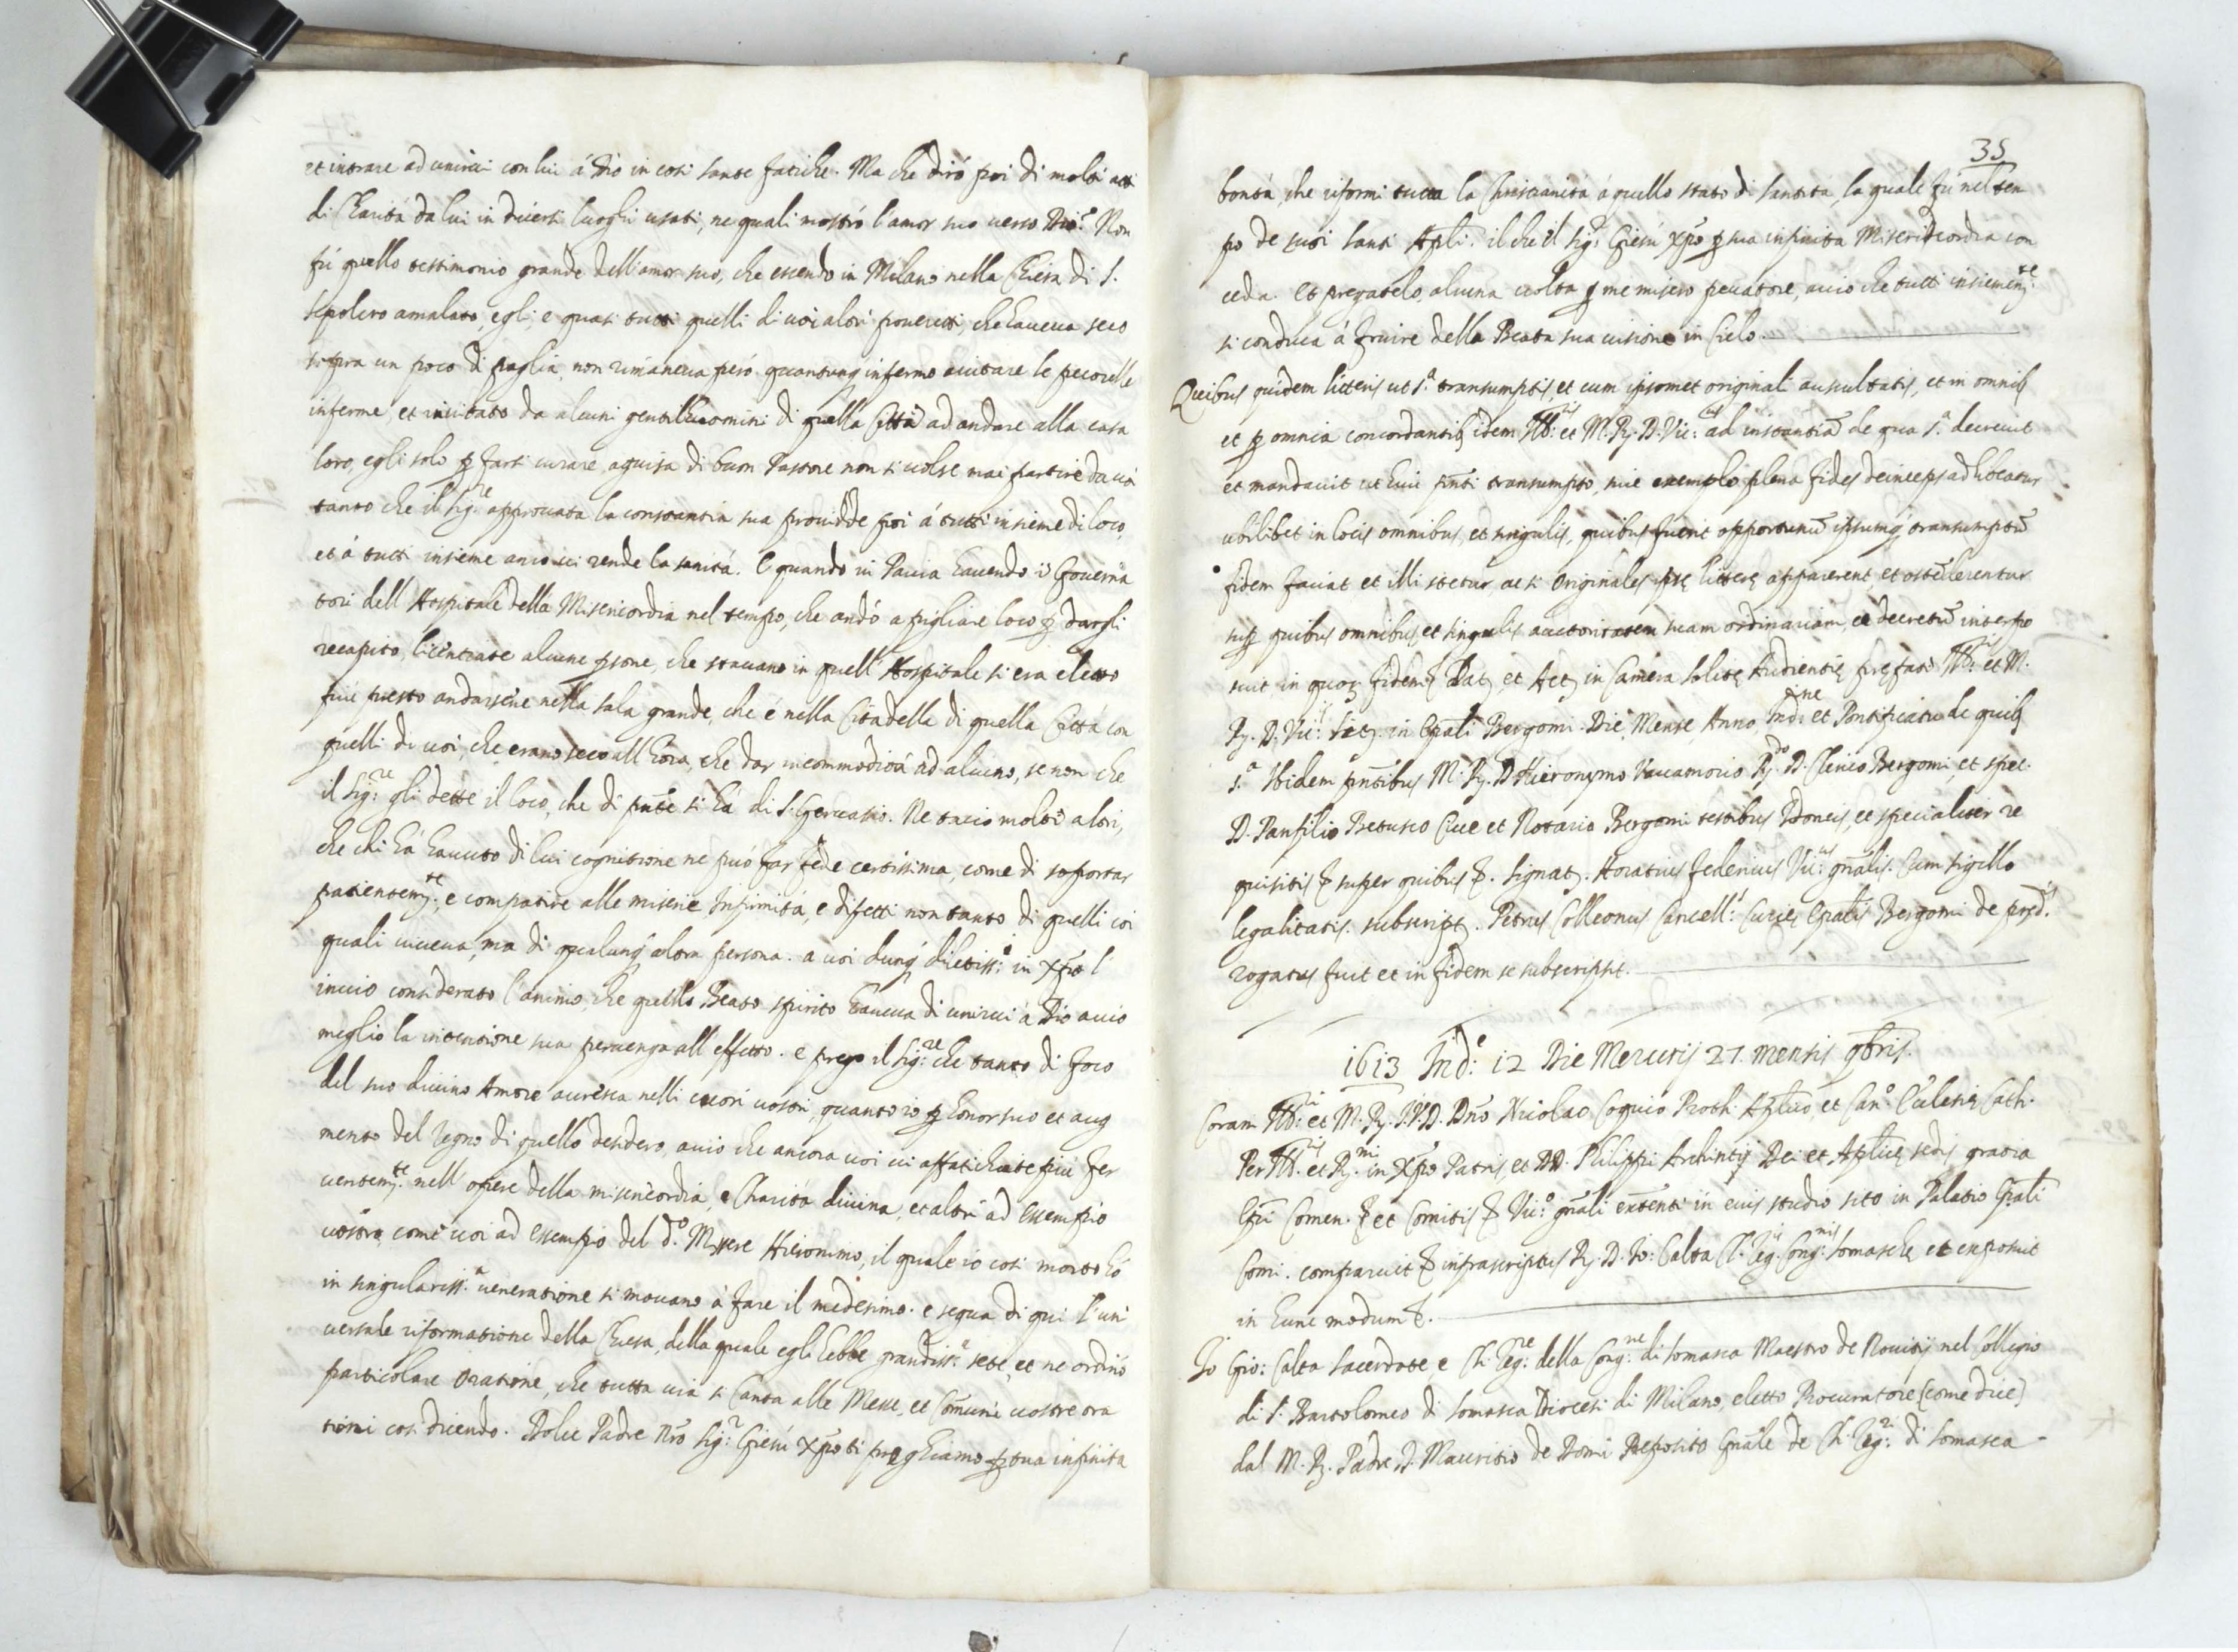 et intrare ad unirui con lui á Dio in cosi sante fatiche. Ma che diró poi di molti atti
di Charitá da lui in diuersi luoghi usati, ne quali mostró l'amor suo uerso Dio? Non
fú quello testimonio grande dell'amor suo, che essendo in Milano nella Chiesa di S.
Sepolcro amalato, egli, e quasi tutti quelli di uoi altri poueretti, che haueua seco
sopra un poco di paglia, non rimaneua peró quantunq infermo aiutare le pecorelle
inferme, et inuitato da alcuni gentilhuomini di quella Cittá ad andare alla casa
loro, egli solo p farsi curare, aguisa di buon Pastore non si uolse mai partire da uoi
tanto che il Sig:re approuata la constantia sua prouidde poi á tutti insieme di loco,
et á tutti insieme anco ui rende la sanitá. E quando in Pauia hauendo i Gouerna
tori dell'Hospitale della Misericordia nel tempo, che andó a pigliare loco p dargli
recapito, licentiate alcune psone, che stauano in quell'Hospitale si era eletto
piú presto andarsene nella sala grande, che é nella Citadella di quella Cittá con
quelli di uoi, che erano seco all'hora, che dar incommoditá ad alcuno, se non che
il Sig:re gli dette il loco, che di pnte si há di S. Geruasio. Ne taccio molti altri,
che chi há hauuto di lui cognitione ne puó far fede certissima, come di soportar
patientem:te, e compatire alle miserie Infirmitá, e difetti non tanto di quelli coi
quali uiueua, ma di qualunq altra persona. a uoi dunq dilettiss:i in Xpo l
inuio considerato l'animo, che quello Beato spirito haueua di unirui á Dio accio
meglio la intentione sua peruenga all'effetto. e prego il Sig:re che tanto di foco
del suo diuino Amore accresca nelli cuori uostri, quanto io p honor suo et aug
mento del regno di quello desidero, accio che ancora uoi ui affatichiate piú fer
uentem:te nell'opere della misericordia, e Charitá diuina, et altri ad essempio
uostro, come uoi ad essempio del d.o Messere Hieronimo, il quale io cosi morto hó
in singulariss:a ueneratione si mouano á fare il medesimo. e segua di qui l'uni
uersale riformatione della Chiesa, della quale egli hebbe grandiss:a sete, et ne ordinó
particolare oratione, che tutta uia si canta alle Messe, et Comuni uostre ora
tioni cosi dicendo. Dolce Padre nro Sig:r Giesú Xpo ti preghiamo p tua infinita
35
bontá, che riformi tutta la Christianitá á quello stato di santitá, la quale fú nel tem
po de tuoi santi Apli. il che il Sig:r Giesú Xpo p sua infinita Misericordia con
ceda. Et pregatelo alcuna uolta p me misero peccatore, accio che tutti insiem:te
ti conduca á fruire della Beata sua uisione in Cielo.
Quibus quidem litteris ut s.a transumptis, et cum ipsomet originali auscultatis, et in omnib
et p omnia concordantib idem Ill: et M. R. D. Vic:us ad instantia de qua s.a decreuit
et mandauit ut huic pnti transumpto, siue exemplo plena fides deinceps adhibeatur
ubilibet in locis omnibus, et singulis, quibus fuerit opportunu ipsumq transumptu
fidem faciat et illi stetur, ac si originales ipsę litterę apparerent, et ostederentur
sup quibus omnibus et singulis auctoritatem suam ordinariam, et decretu interpo
suit in quoꝝ fidem &. Dat. et Act. in Camera solitę Audientię pręfati Ill:is et M.
R. D. Vic:ii sit. in Epali Bergomi. Die, Mense, Anno, Ind:ne et Pontificatu de quib
s.a Ibidem pntibus M. R. D. Hieronymo Vacamorio R.do D. Clerico Bergomi, et spec.
D. Panfilio Betusco Ciue et Notario Bergomi testibus Idoneis, et specialiter re
quisitis & super quibus &. Signat. Horatius Federicus Vic:us gnalis. Cum sigillo
legalitatis. subscript. Petrus Colleonus Cancell: Curię Epalis Bergomi de pred.is
rogatus fuit et in fidem se subscripsit.
1613 Ind:e 12 Die Mercurij 27. mensis 9bris.
Coram Ill:ri et M. R. I.V.D. Dno Nicolao Coquio Proth. Aplico, et Can:o Ecclesię Cath.
Per Ill:is et R.mi in Xpo Patris, et DD. Philippi Archintij Dei et Aplicę sedis gratia
Epi Comen. & et Comitis & Vic:o gnali existenti in eius studio sito in Palatio Epali
Comi. comparuit & infrascriptus R. D. Io: Calta Cl. Reg. Cong:nis Somaschę et exposuit
in hunc modum &.
Io Gio: Calta Sacerdote, e Ch. Reg:re della Cong:ne di Somasca Maestro de Nouitij nel Collegio
di S. Bartolomeo di Somasca Diocesi di Milano, eletto Procuratore (come dice)
dal M. R. Padre D. Mauritio de Domi Preposito Gnale de Ch. Reg:ri di Somasca